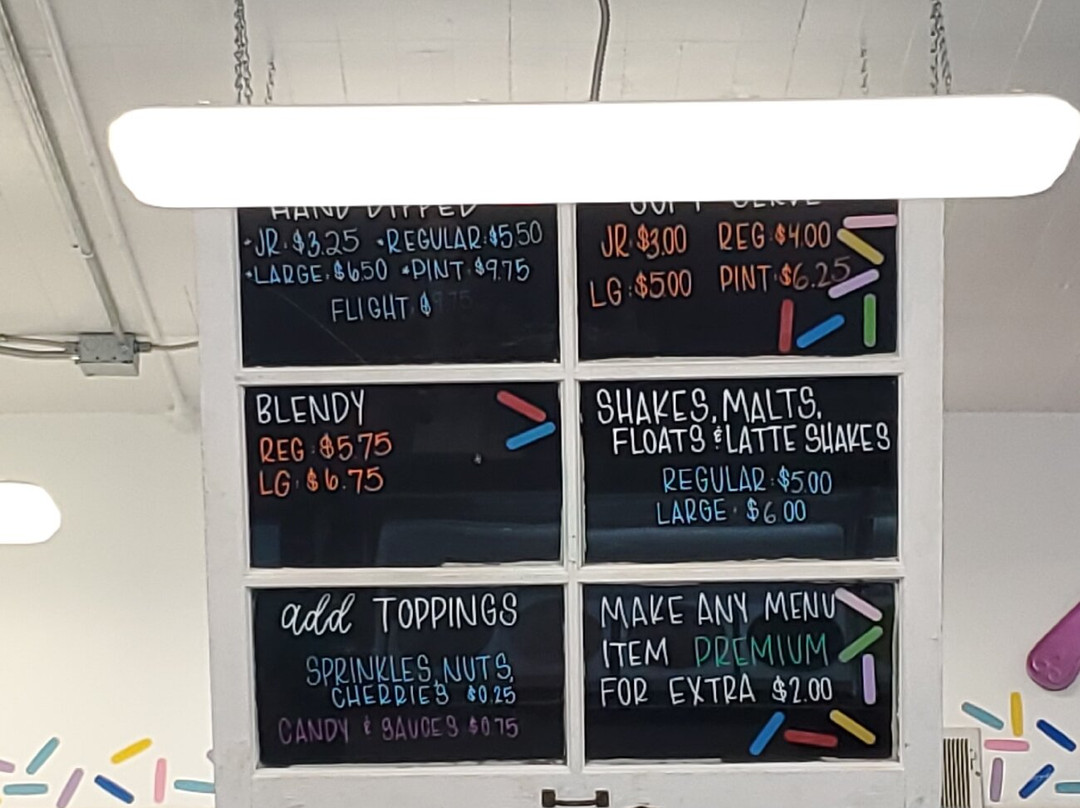 HAND DIPPED
•JR: $3.25 •REGULAR: $5.50
•LARGE: $6.50 •PINT $9.75
FLIGHT $9.75
SOFT SERVE
JR: $3.00 REG: $4.00
LG: $5.00 PINT: $6.25
BLENDY
REG: $5.75
LG: $6.75
SHAKES, MALTS,
FLOATS & LATTE SHAKES
REGULAR: $5.00
LARGE: $6.00
add TOPPINGS
SPRINKLES, NUTS,
CHERRIES $0.25
CANDY & SAUCES $0.75
MAKE ANY MENU
ITEM PREMIUM
FOR EXTRA $2.00